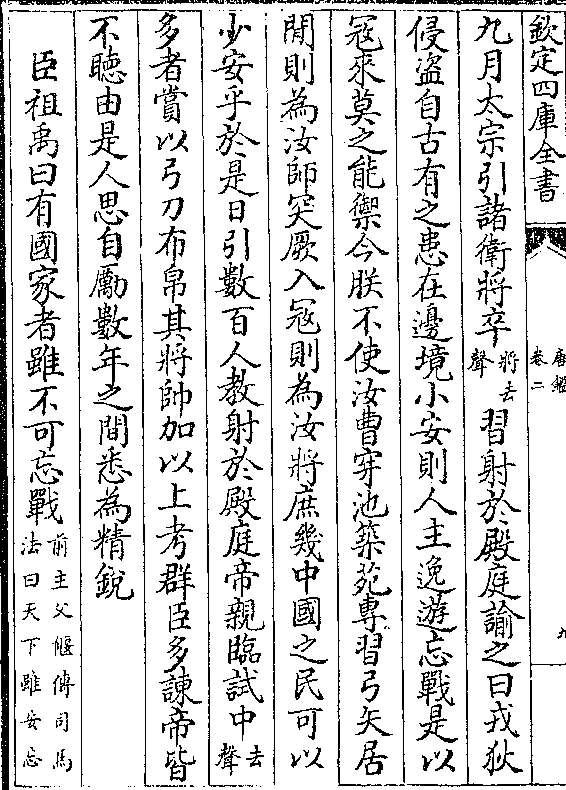 欽定四庫全書
唐鑑
卷二
九
九月太宗引諸衛將卒將去聲習射於殿庭諭之曰戎狄
侵盗自古有之患在邊境小安則人主逸遊忘戰是以
冦來莫之能禦今朕不使汝曹穿池築苑專習弓矢居
閒則為汝師突厥入冦則為汝將庶幾中國之民可以
少安乎於是日引數百人教射於殿庭帝親臨試中去聲
多者賞以弓刀布帛其將帥加以上考群臣多諫帝皆
不聽由是人思自勵數年之間悉為精銳
臣祖禹曰有國家者雖不可忘戰前主父偃傳司馬法曰天下雖安忘